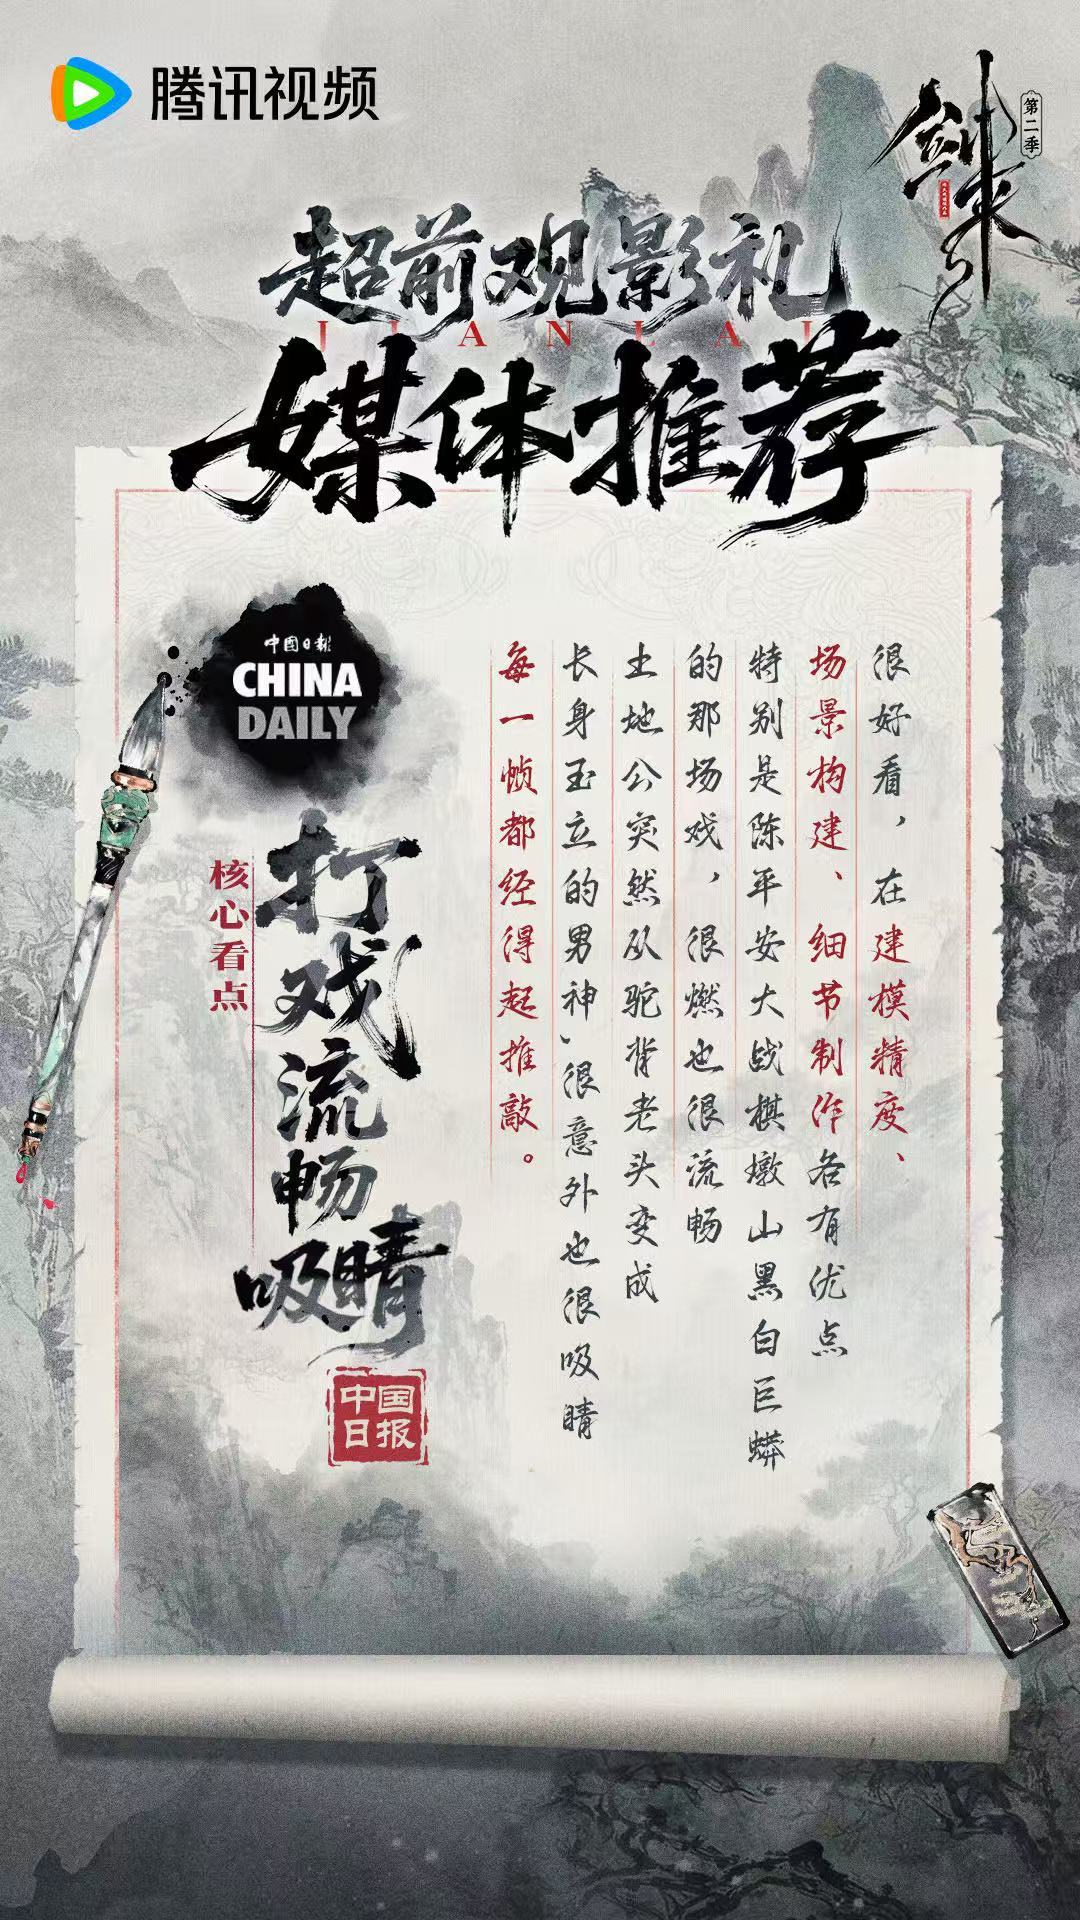 腾讯视频
剑来
第二季
超前观影礼
JIANLAI
媒体推荐
中国日报
CHINA
DAILY
核心看点
打戏流畅吸睛
中国
日报
很好看，在建模精度、
场景构建、细节制作各有优点
特别是陈平安大战棋墩山黑白巨蟒
的那场戏，很燃也很流畅
土地公突然从驼背老头变成
长身玉立的男神、很意外也很吸睛
每一帧都经得起推敲。